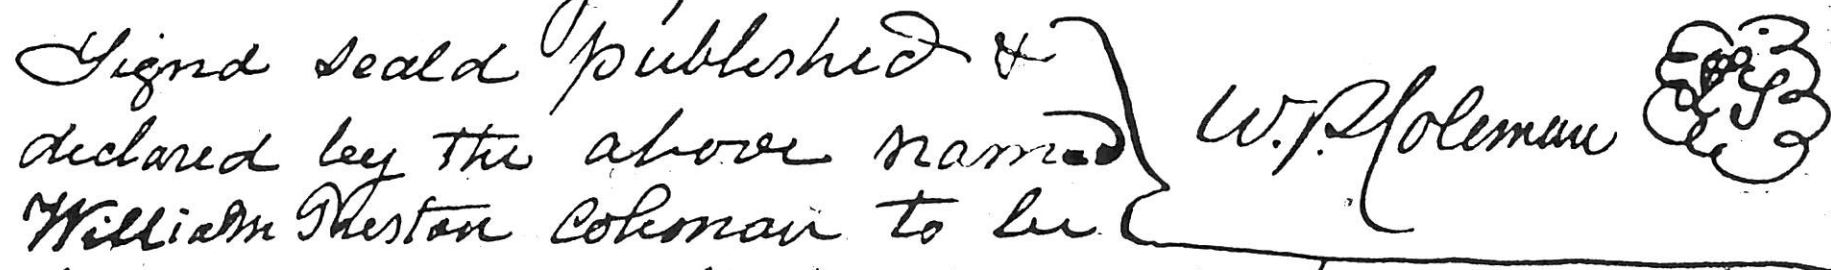 Signd seald published &
declared by the above named
William Preston Coleman to be
W. P. Coleman
LS